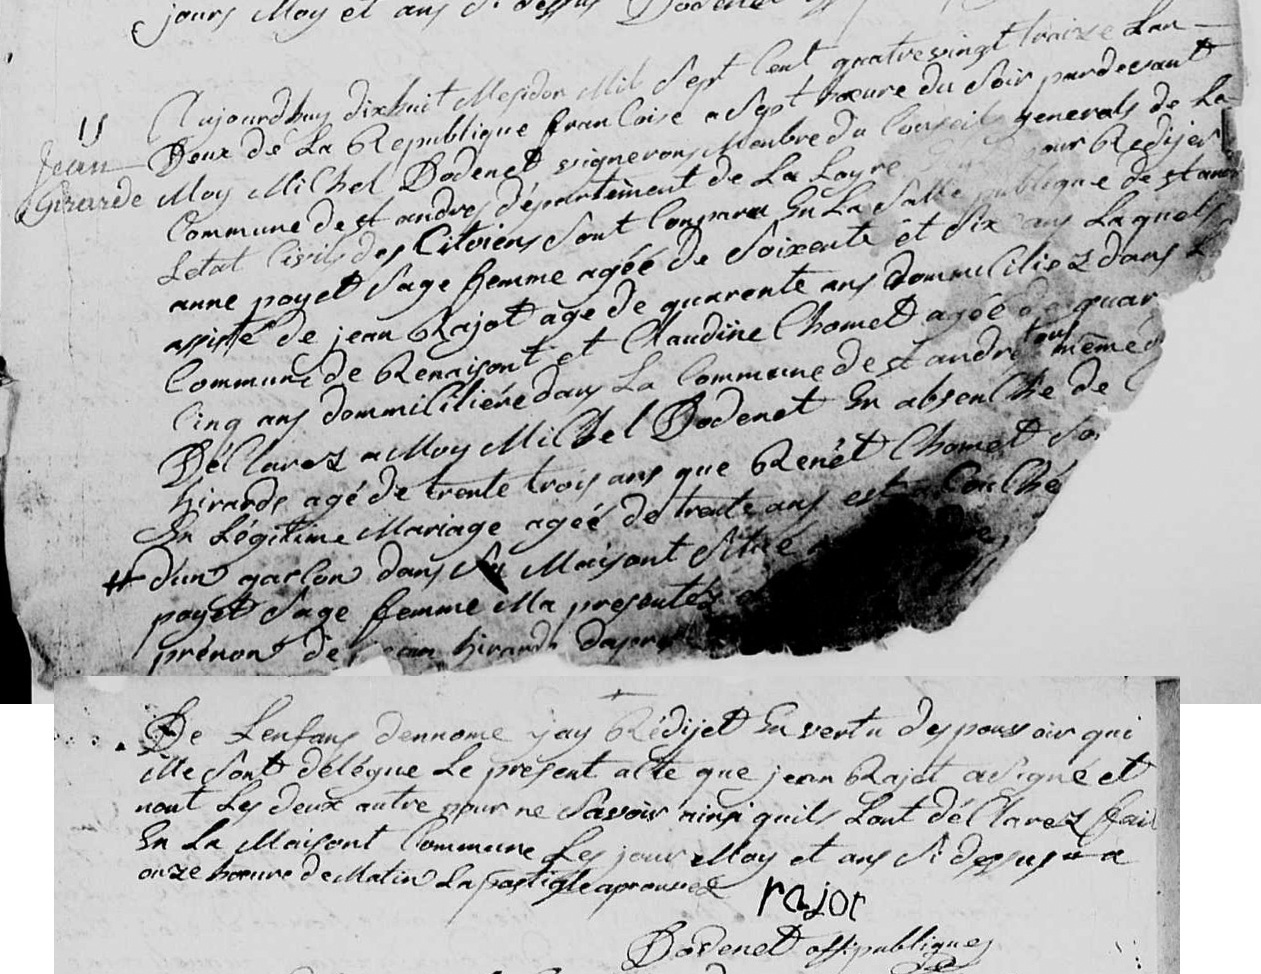 jours Moy et ans Si dessus Dodenet
15
Jean
Girarde
Aujourdhuy dixhuit Mesidor Mil Sept Cent quatrevingt traize Lan
Deux de La Republique francoise a Sept hœure du Soir pardevant
Moy Michel Dodenet vigneron Menbre du Conseil generals de La
Commune de st andre département de La Loyre pour Redijer
Letat Civils des Citoiens Sont Conparu En La Salle publique de st andre
anne poyet Sage femme agéé de Soixente et Six ans Laquels
assisté de jean Rajot age de quarente ans dommicilies dans L
Commune de Renaisont et Claudine Chomet agéé de quar
Cinq ans dommiciliére dans La Commune de st andre tous même
Déclarez a Moy Michel Dodenet En absenche de
hirarde agé de trente trois ans que Renét Chomet So
En Légitime Mariage agéé de trente ans est acouché
# d'un garcon dans Sa Maisont Situé
poyet Sage femme Ma presentéz
prénon de jean hirarde dapre
De Lenfans dennome jay Rédijet En vertu des pouvoir qui
Me Sont délégue Le present acte que jean Rajot a Signé et
nont Les deux autre pour ne Savoir ainsi quils Lont déClarez fait
En La Maisont Commune Les jour Moy et ans Si dessus a
onze hœure de Matin La postigle aprouvez
rajot
Dodenet off publique